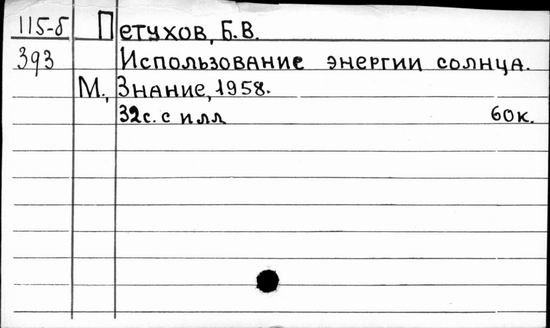 115-б Петухов, Б.В.
393 Использование энергии солнца.
М., Знание, 1958.
32с. с илл 60к.